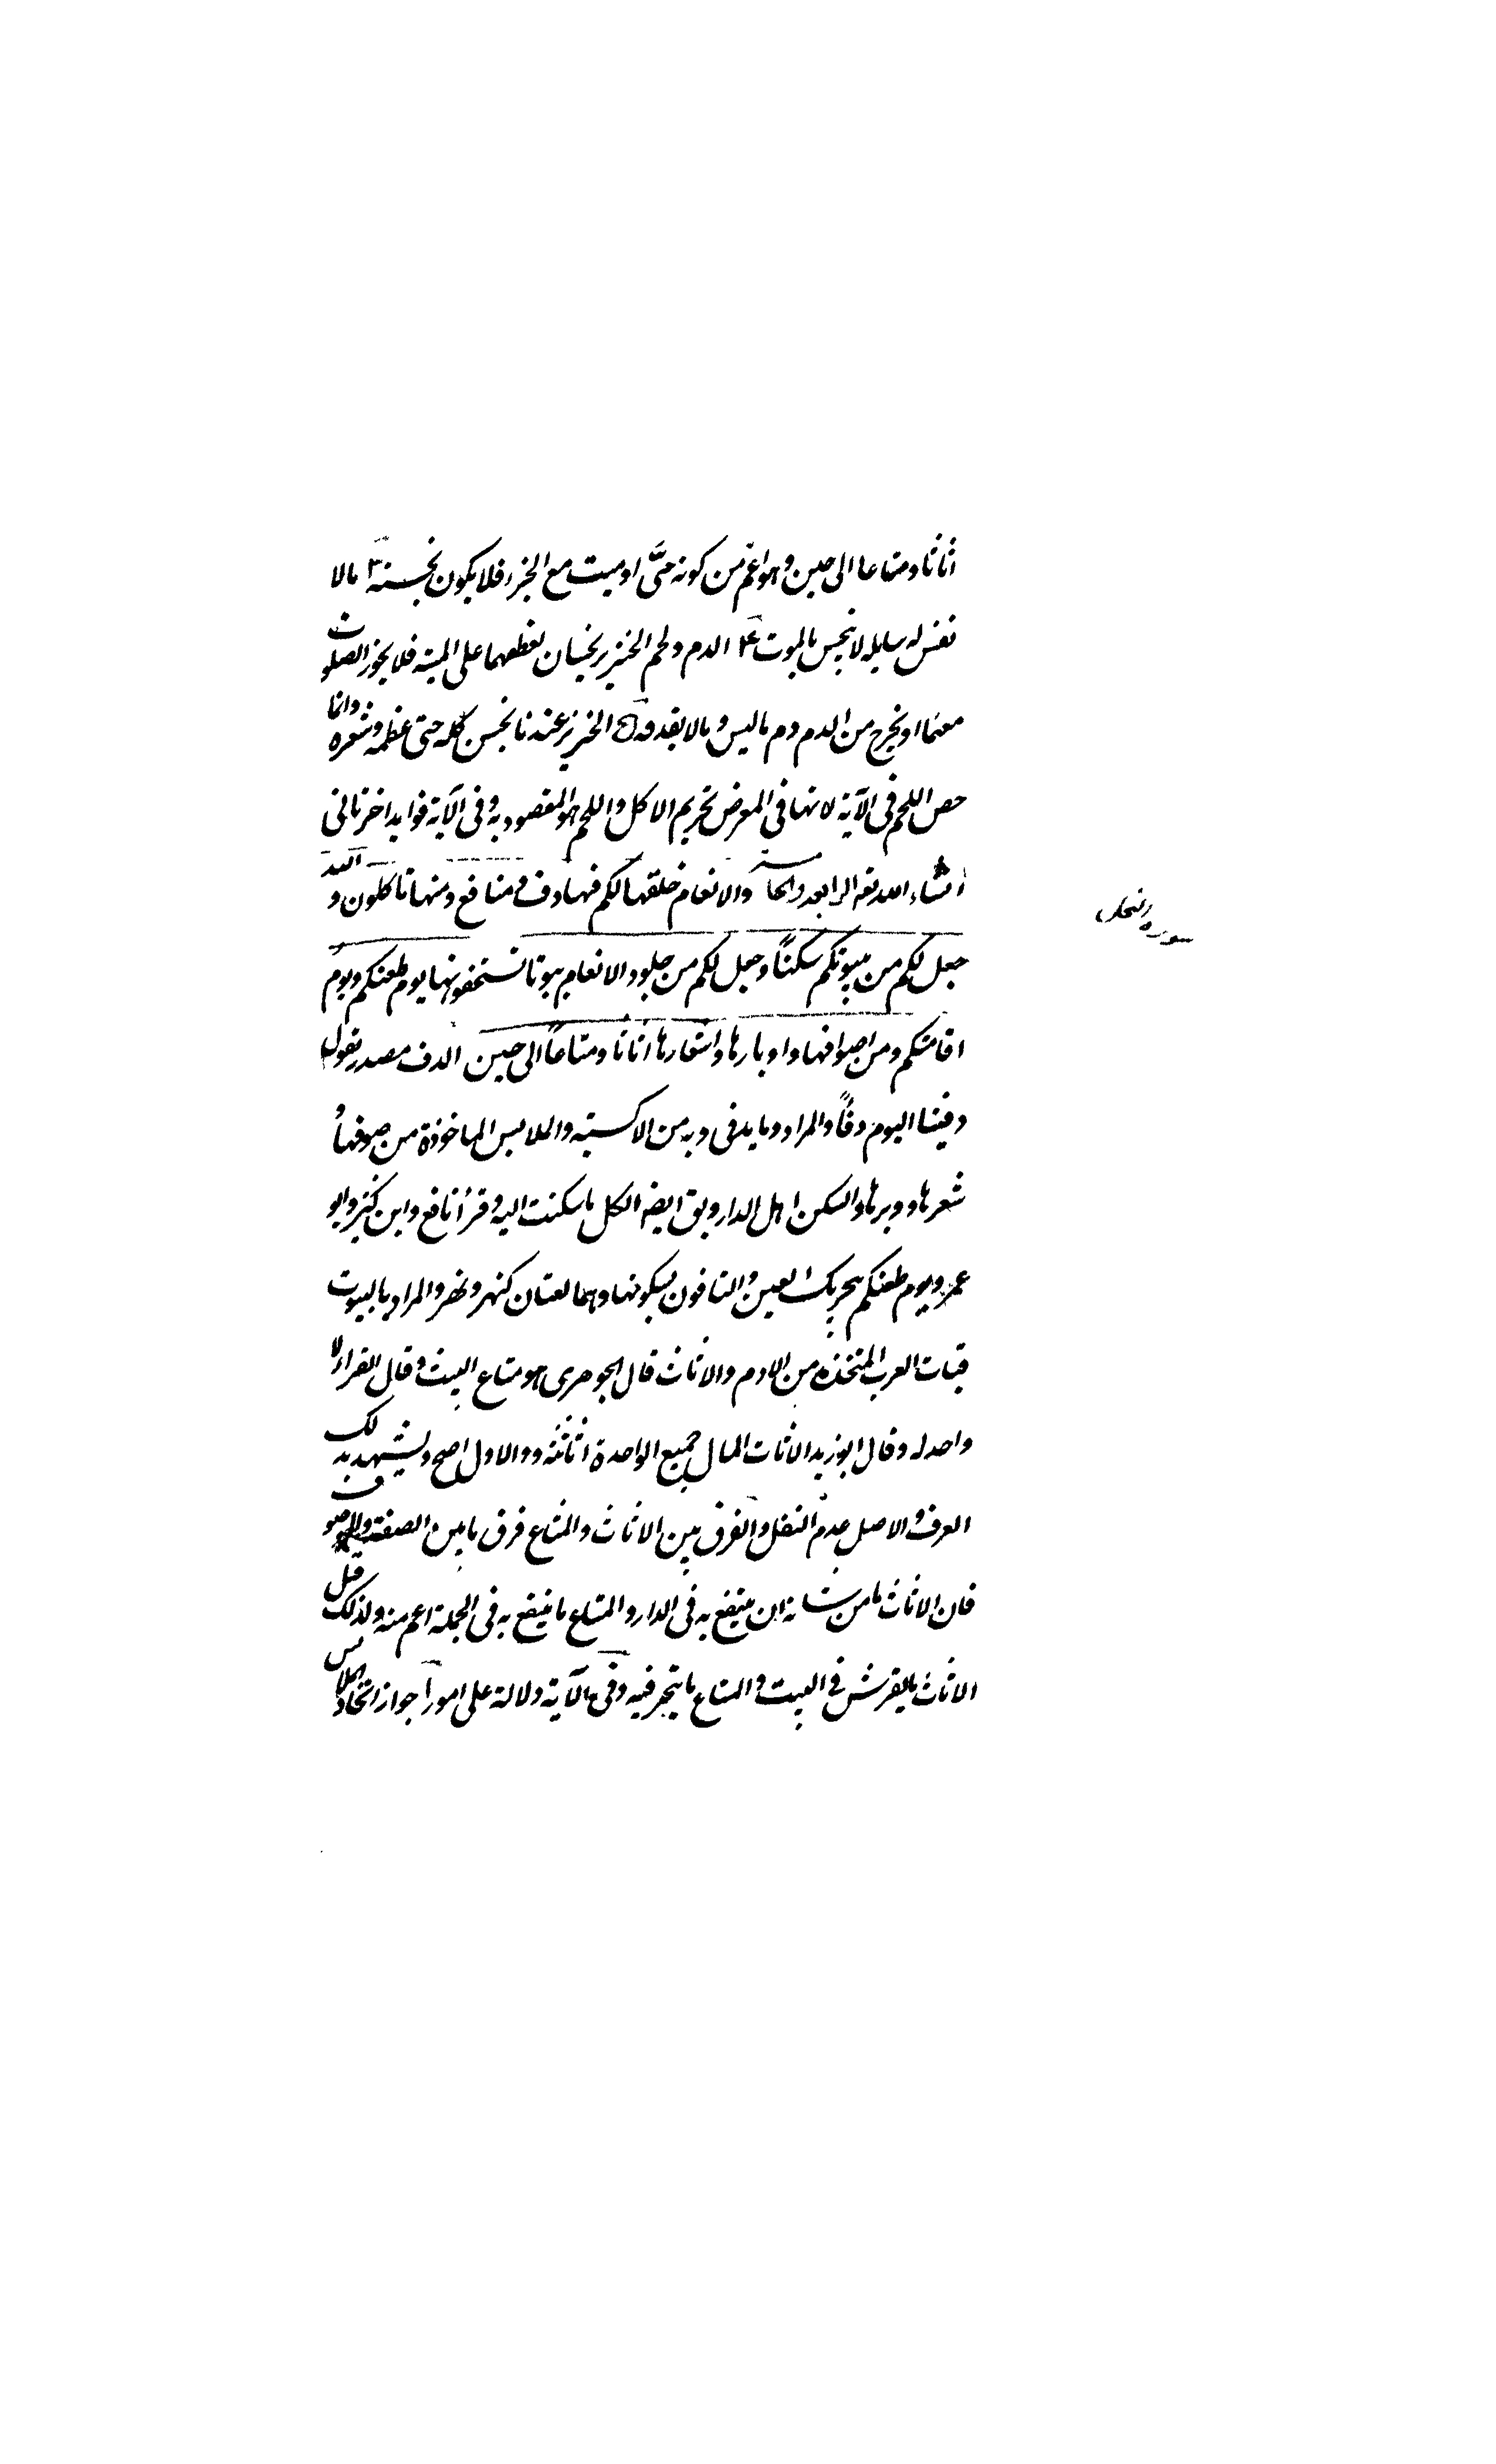 اثاثا ومتاعا الى حين وهو اعم من كونه حيَّ او ميت مع الجز فلا يكون نجسة ٣ مالا
نفس له سايله لا ينجس بالموت ۴ الدم ولحم الخنزير نجسان لعطفهما على الميتة فلا يجوز الصلوت
معهما او يخرج من الدم دم ماليس و مالا يقذفه ۵ الخنزير عندنا نجس كله حتى عظمه وشعره وانما
خص اللحم فى الآية لانها فى المعرض تحريم الاكل واللحم هو المقصود به وفى الآية فوايد اخر تاتى
انشاء الله تعه الرابعه والانعام خلقها لكم فيها دف و منافع ومنها تاكلون و الله
جعل لكم من بيوتكم سكناً وجعل لكم من جلود الانعام بيوتا تستخفونها يوم ظعنكم ويوم
اقامتكم ومن اصوافها واوبارها واشعارها اثاثا ومتاعاً الى حين الدف مصدر يقول
دفينا اليوم دفأً والمراد وما يدفى وبه من الاكسيته والملابس الماخوذة من صوفها و
شعرها ووبرها والسكن اهل الدار ويق ايضه الكل ما سكنت اليه وقرأ نافع وابن كثير وابو
عمرو يوم ظعنكم بتحريك العين والباقون بسكونها وهما لغتان كنهر ونهر والمراد بالبيوت
قبات العرب المتخذه من الادم والاثاث قال الجوهرى هو متاع البيت وقال الفراء لا
واحد له وقال ابو زيد الاثاث المال جميع الواحدة اثاثة والاول اصح ويشهد بذلك
العرف والاصل عدم النقل والفرق بين الاثاث والمتاع فرق ما بين الصفة والموصوف
فان الاثاث ما من شانه ان ينتفع به فى الدار والمتاع ما ينتفع به فى الجملة اعم منه ولذلك قيل
الاثاث ما يفرش فى البيت والمتاع ما يتجر فيه وفى الآية دلالة على امور آ جواز اتخاذ الملابس
سوره النحل